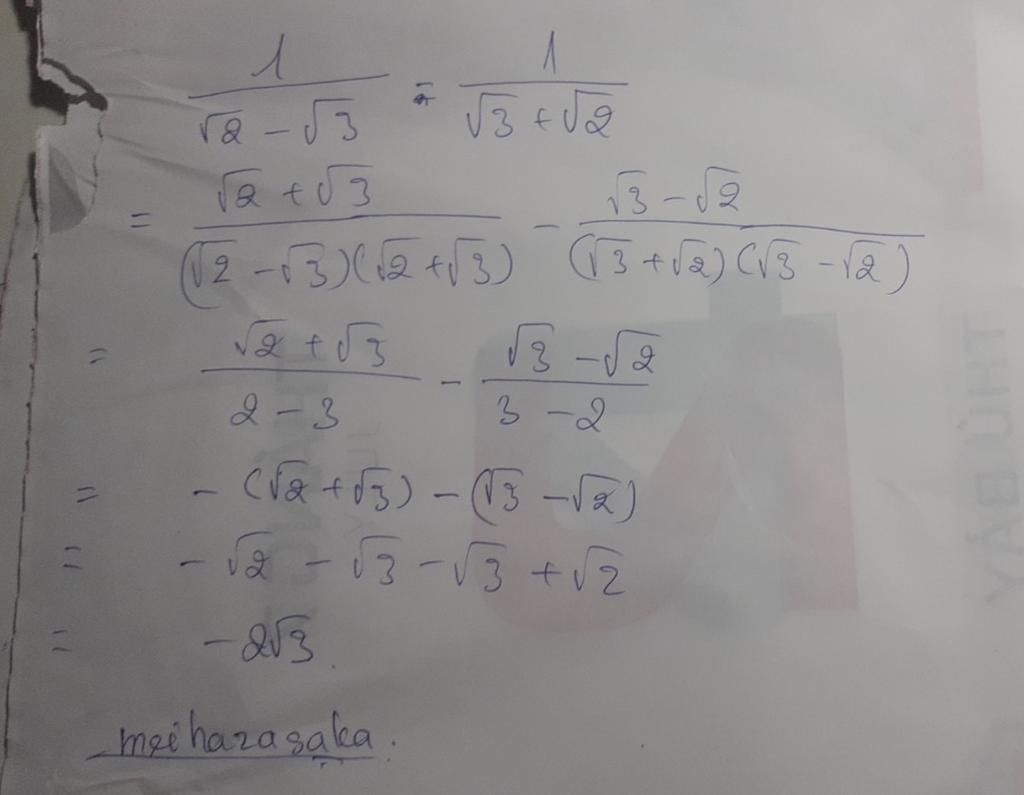 1/(√2 − √3) = 1/(√3 + √2)
= (√2 + √3)/((√2 − √3)(√2 + √3)) − (√3 − √2)/((√3 + √2)(√3 − √2))
= (√2 + √3)/(2 − 3) − (√3 − √2)/(3 − 2)
= − (√2 + √3) − (√3 − √2)
= − √2 − √3 − √3 + √2
= −2√3.
meiharasaka.
THỨ BẢY